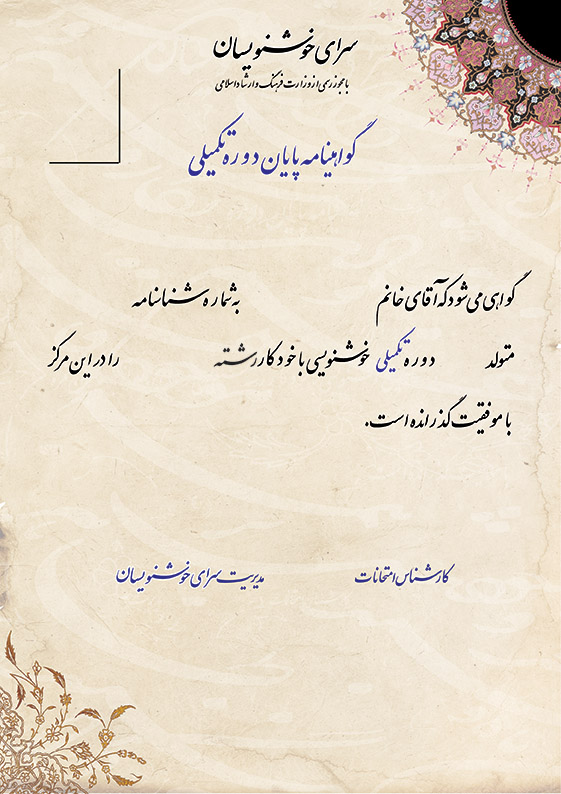 سرای خوشنویسان
با مجوز رسمی از وزارت فرهنگ و ارشاد اسلامی
گواهینامه پایان دوره تکمیلی
گواهی می شود که آقای خانم به شماره شناسنامه
متولد دوره تکمیلی خوشنویسی با خودکار رشته را در این مرکز
با موفقیت گذرانده است.
کارشناس امتحانات مدیریت سرای خوشنویسان